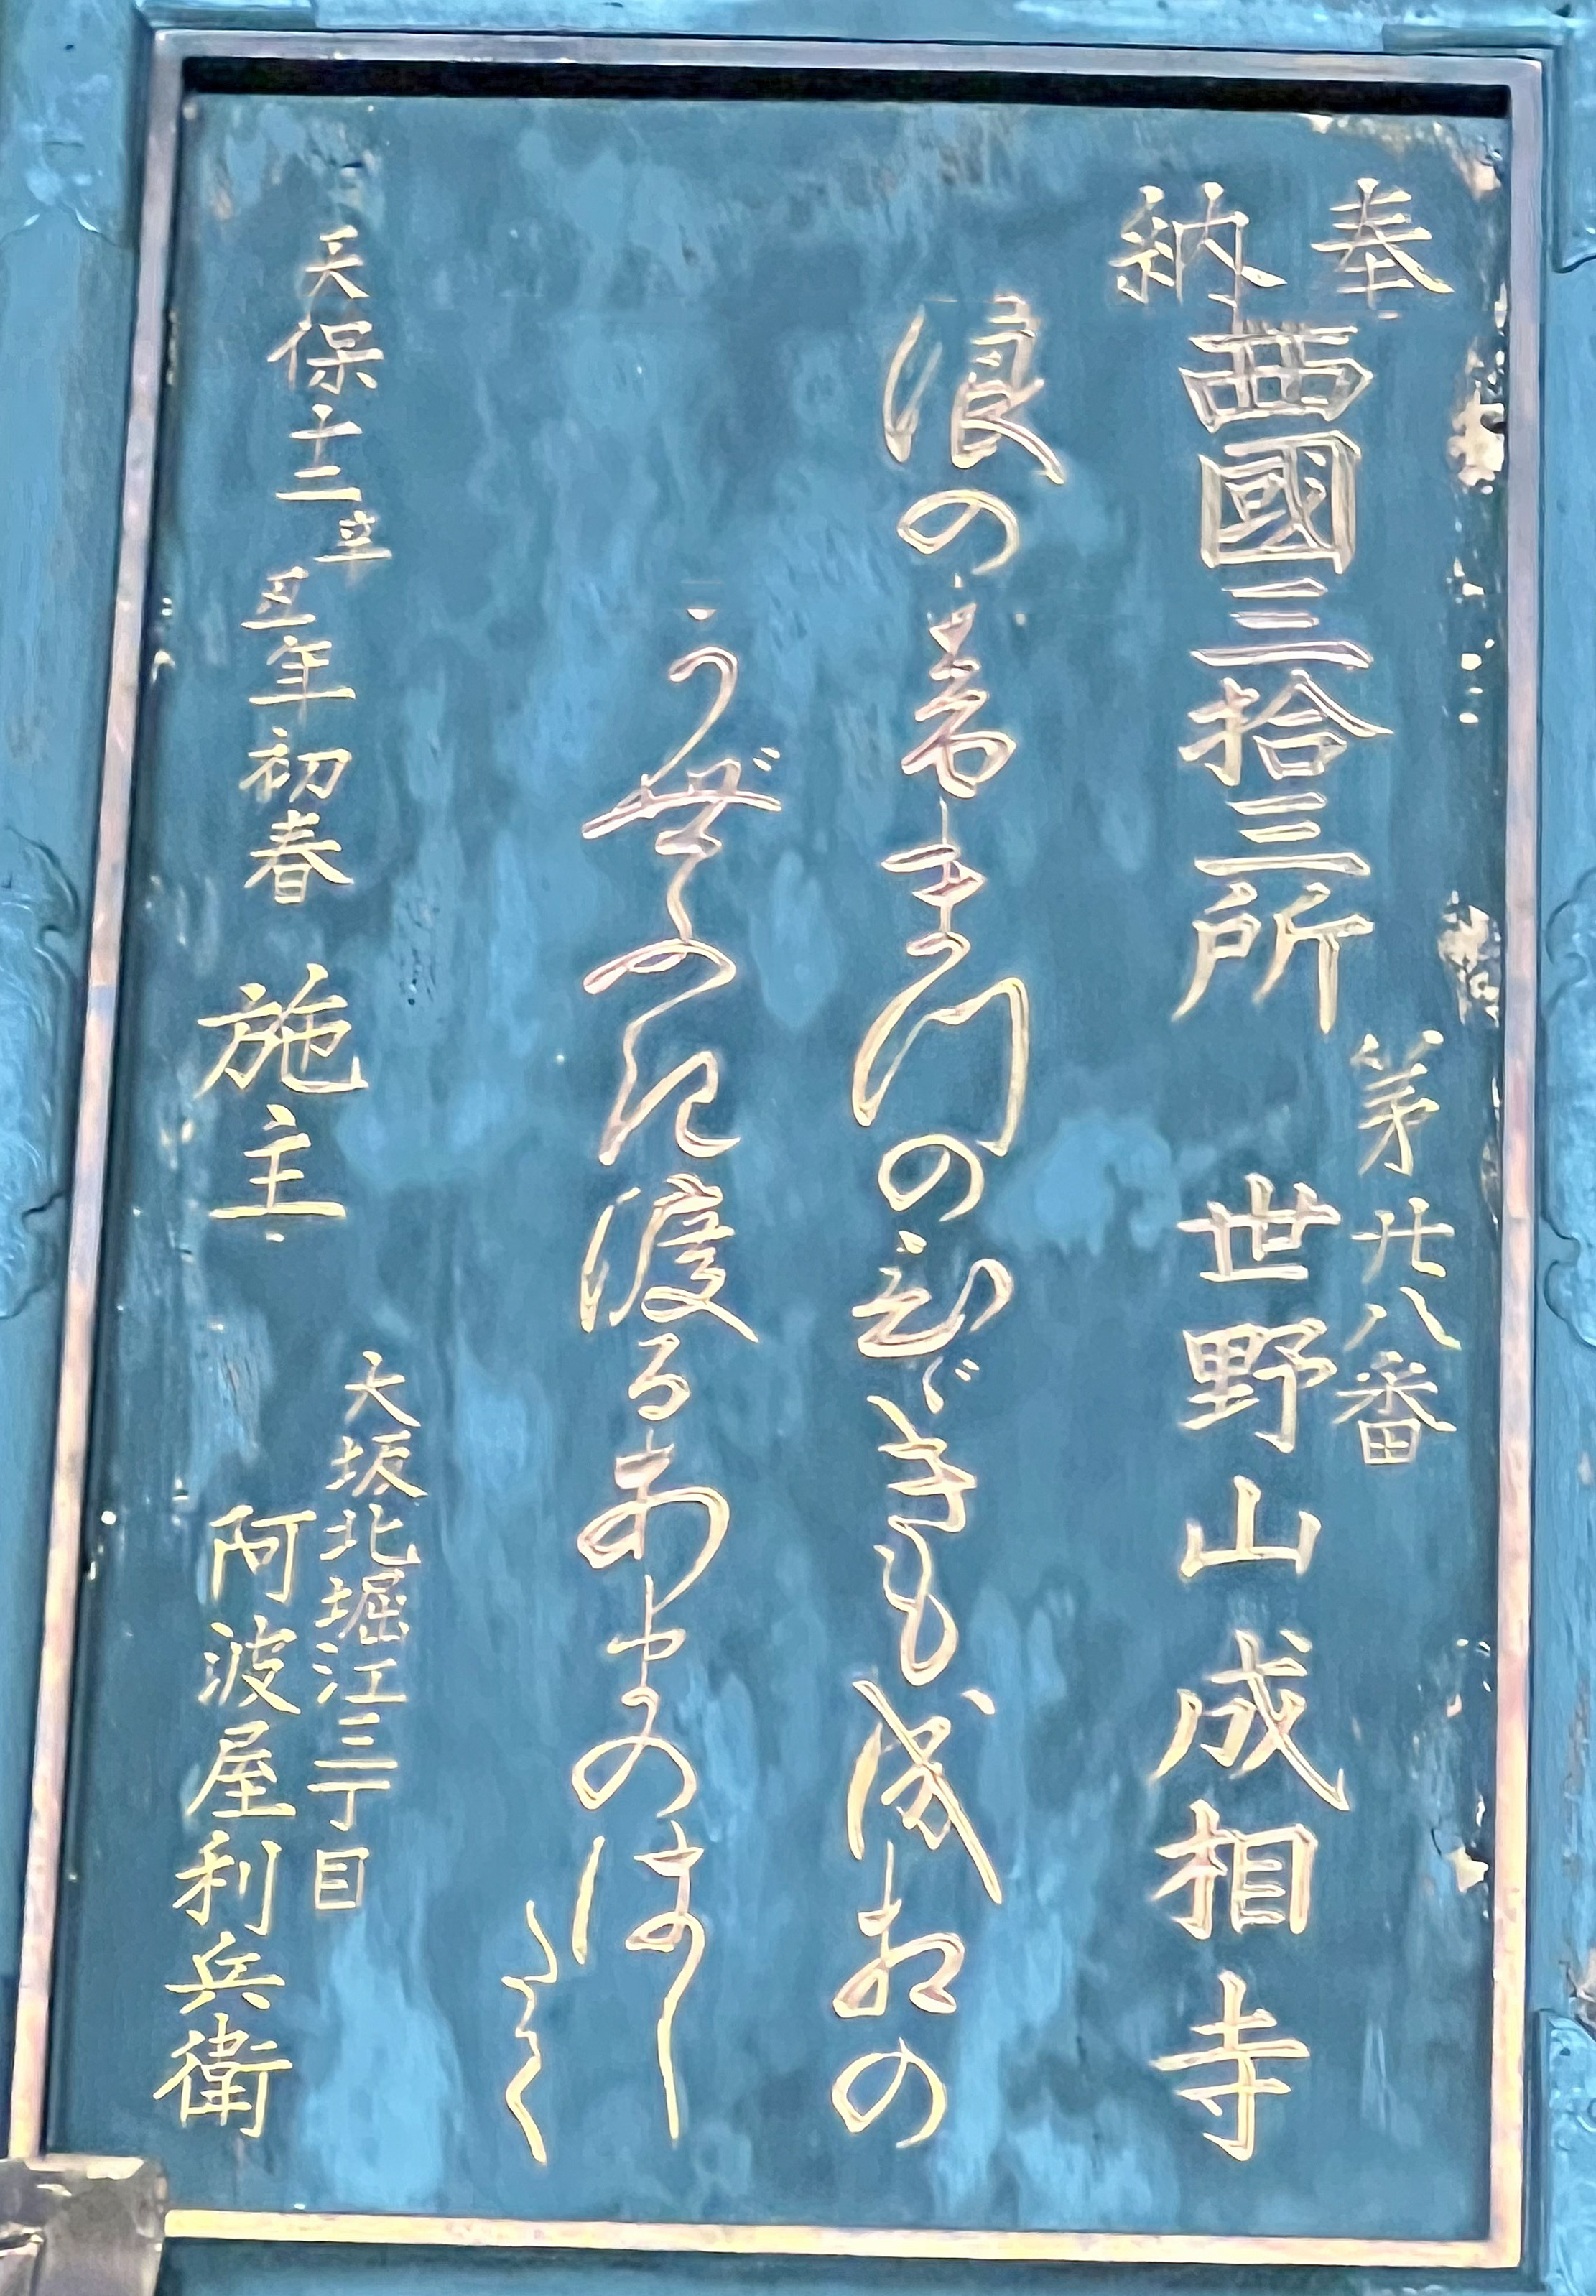 奉納
西國三拾三所
第廿八番
世野山成相寺
浪の音まつのひびきも成相の
かぜふき渡るあまのはし
だて
天保十二辛丑年初春
施主
大坂北堀江三丁目
阿波屋利兵衛